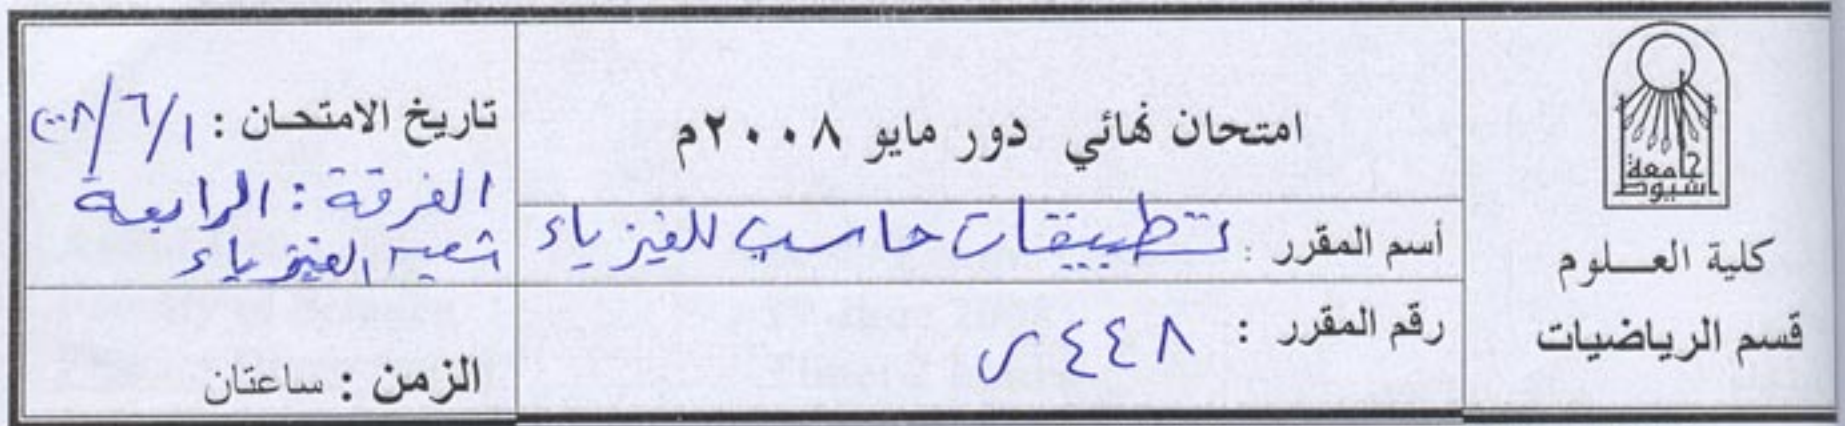 جامعة
أسيوط
كلية العـــلوم
قسم الرياضيات
امتحان نهائي دور مايو ٢٠٠٨م
أسم المقرر : تطبيقات حاسب للفيزياء
رقم المقرر : ٤٤٨ ر
تاريخ الامتحـان : ٢٠٠٨/٦/١
الفرقة : الرابعة
شعبة الفيزياء
الزمن : ساعتان